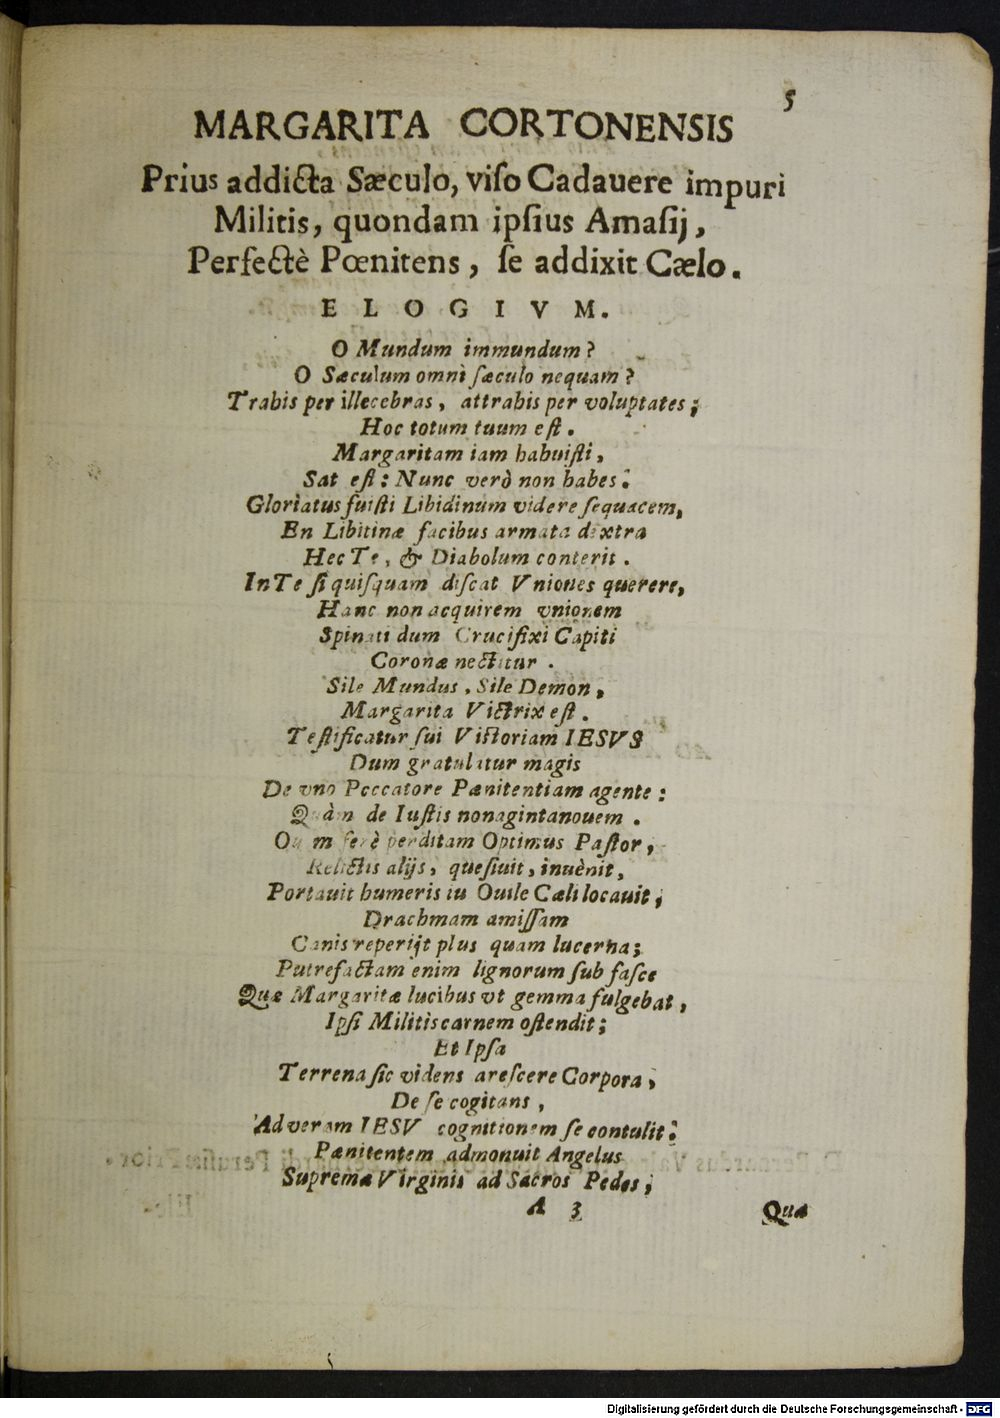 5
MARGARITA CORTONENSIS
Prius addicta Sæculo, viſo Cadauere impuri
Militis, quondam ipſius Amaſij,
Perfectè Pœnitens, ſe addixit Cælo.
ELOGIVM.
O Mundum immundum?
O Sæculum omni ſæculo nequam?
Trabis per illecebras, attrabis per voluptates;
Hoc totum tuum eſt.
Margaritam iam habuiſti,
Sat eſt: Nunc verò non habes:
Gloriatus fuiſti Libidinum videre ſequacem,
En Libitinæ facibus armata dextra
Hec Te, & Diabolum conterit.
In Te ſi quiſquam diſcat Vniones querere,
Hanc non acquirem vnionem
Spinati dum Crucifixi Capiti
Coronæ nectitur.
Sile Mundus, Sile Demon,
Margarita Victrix eſt.
Teſtificatur ſui Victoriam IESVS
Dum gratulatur magis
De vno Peccatore Pænitentiam agente:
Quàm de Iuſtis nonagintanouem.
Quam ferè perditam Optimus Paſtor,
Relictis alijs, queſiuit, inuènit,
Portauit humeris in Ouile Cæli locauit;
Drachmam amiſſam
Canis reperijt plus quam lucerna;
Putrefactam enim lignorum ſub faſce
Quæ Margaritæ lucibus vt gemma fulgebat,
Ipſi Militis carnem oſtendit;
Et Ipſa
Terrena ſic videns areſcere Corpora,
De ſe cogitans,
Ad veram IESV cognitionem ſe contulit:
Pænitentem admonuit Angelus
Supremæ Virginis ad Sacros Pedes;
A 3 Quæ
Digitalisierung gefördert durch die Deutsche Forschungsgemeinschaft - DFG